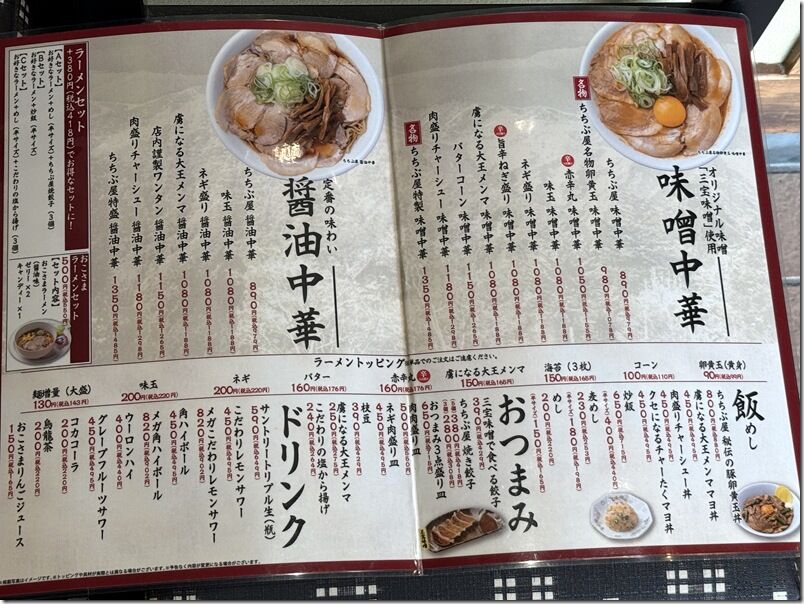 オリジナル味噌
「三宝味噌」使用
味噌中華
ちちぶ屋 味噌中華 890円(税込979円)
名物 ちちぶ屋名物卵黄玉 味噌中華 980円(税込1078円)
赤辛丸 味噌中華 1050円(税込1155円)
味玉 味噌中華 1080円(税込1188円)
ネギ盛り 味噌中華 1080円(税込1188円)
旨辛ねぎ盛り 味噌中華
虜になる大王メンマ 味噌中華 1150円(税込1265円)
バターコーン 味噌中華
肉盛りチャーシュー 味噌中華 1180円(税込1298円)
名物 ちちぶ屋特製 味噌中華 1350円(税込1485円)
定番の味わい
醤油中華
ちちぶ屋 醤油中華 890円(税込979円)
味玉 醤油中華 1080円(税込1188円)
ネギ盛り 醤油中華 1080円(税込1188円)
虜になる大王メンマ 醤油中華 1150円(税込1265円)
店内謹製ワンタン 醤油中華 1160円
肉盛りチャーシュー 醤油中華 1180円(税込1298円)
ちちぶ屋特盛 醤油中華 1350円(税込1485円)
ラーメンセット
+380円(税込418円)でお得なセットに!
【Aセット】
お好きなラーメン+めし(半サイズ)+ちちぶ屋焼餃子(3個)
【Bセット】
お好きなラーメン+炒飯(半サイズ)
【Cセット】
お好きなラーメン+めし(半サイズ)+こだわりの塩から揚げ(3個)
おこさま
ラーメンセット
500円(税込550円)
【セット内容】
おこさまラーメン
(醤油味)
ゼリー×2
キャンディー×1
ラーメントッピング ※単品でのご注文はご遠慮ください。
卵黄玉(黄身) 90円(税込99円)
コーン 100円(税込110円)
海苔(3枚) 150円(税込165円)
虜になる大王メンマ 150円(税込165円)
赤辛丸 160円(税込176円)
バター 160円(税込176円)
ネギ 200円(税込220円)
味玉 200円(税込220円)
麺増量(大盛) 130円(税込143円)
飯 めし
ちちぶ屋 秘伝の豚卵黄玉丼
虜になる大王メンママヨ丼
肉盛りチャーシュー丼
クセになるチャーたくマヨ丼
炒飯
麦めし
めし
おつまみ
三宝味噌で食べる餃子
ちちぶ屋 焼き餃子
おつまみ3点盛り皿
肉肉肉盛り皿
ネギ肉肉盛り皿
虜になる大王メンマ
こだわりの塩から揚げ
枝豆
ドリンク
サントリートリアル生(瓶) 590円(税込649円)
こだわりレモンサワー 450円(税込495円)
メガこだわりレモンサワー 820円(税込902円)
角ハイボール 450円(税込495円)
メガ角ハイボール 820円(税込902円)
ウーロンハイ 400円(税込440円)
グレープフルーツサワー 450円(税込495円)
コカコーラ 200円(税込220円)
烏龍茶 200円(税込220円)
おこさまりんごジュース 150円(税込165円)
※掲載写真はイメージです。※トッピングや具材が実際とは異なる場合がございます。※予告なく内容が変更になる場合がございます。